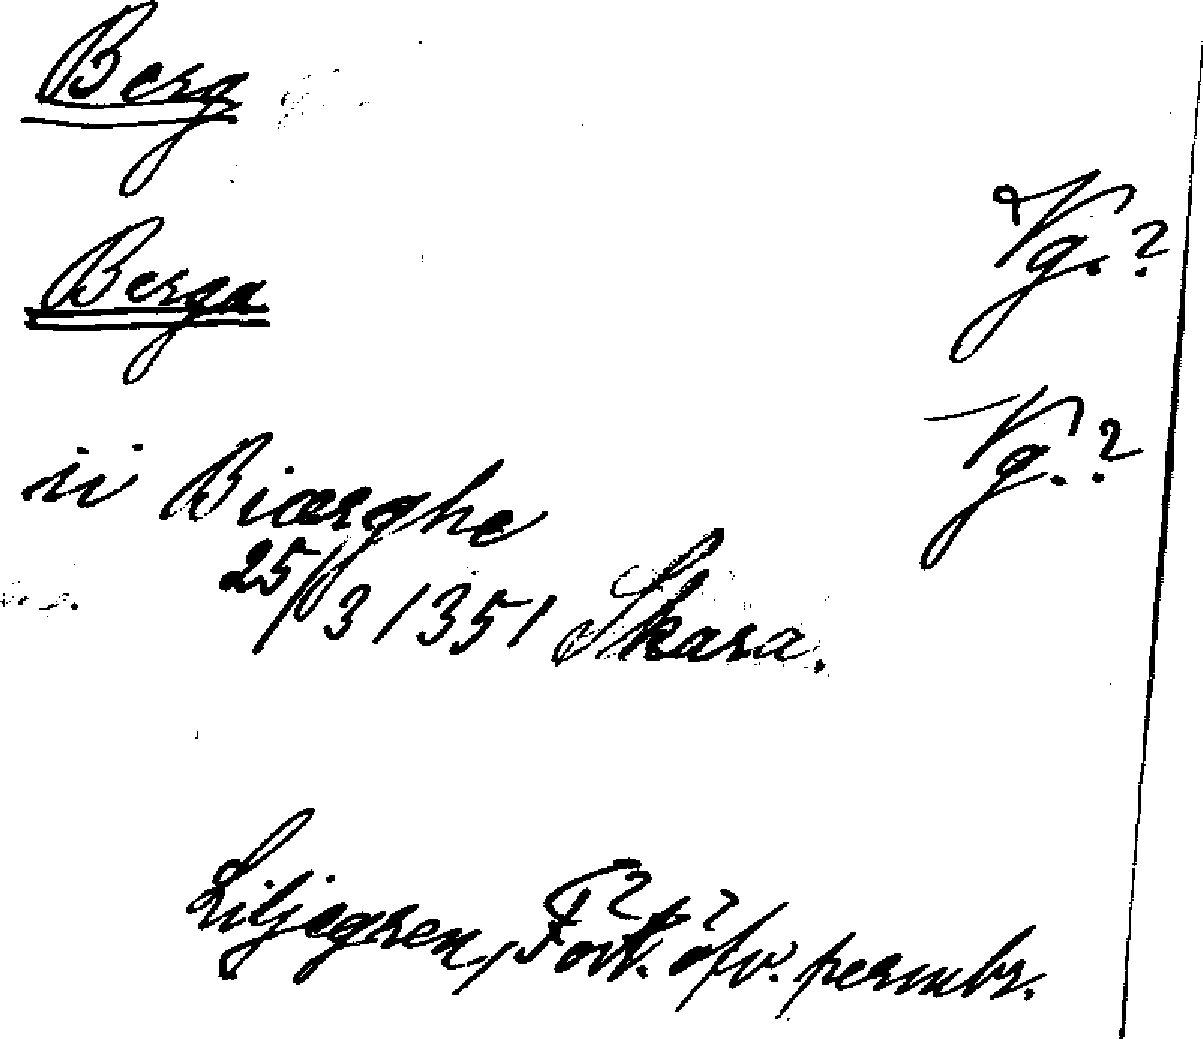 Berg
Vg.?
Berga
Vg.?
ii Biærghe
25/3 1351 Skara.
Liljegren, Fört. öfv. permbr.